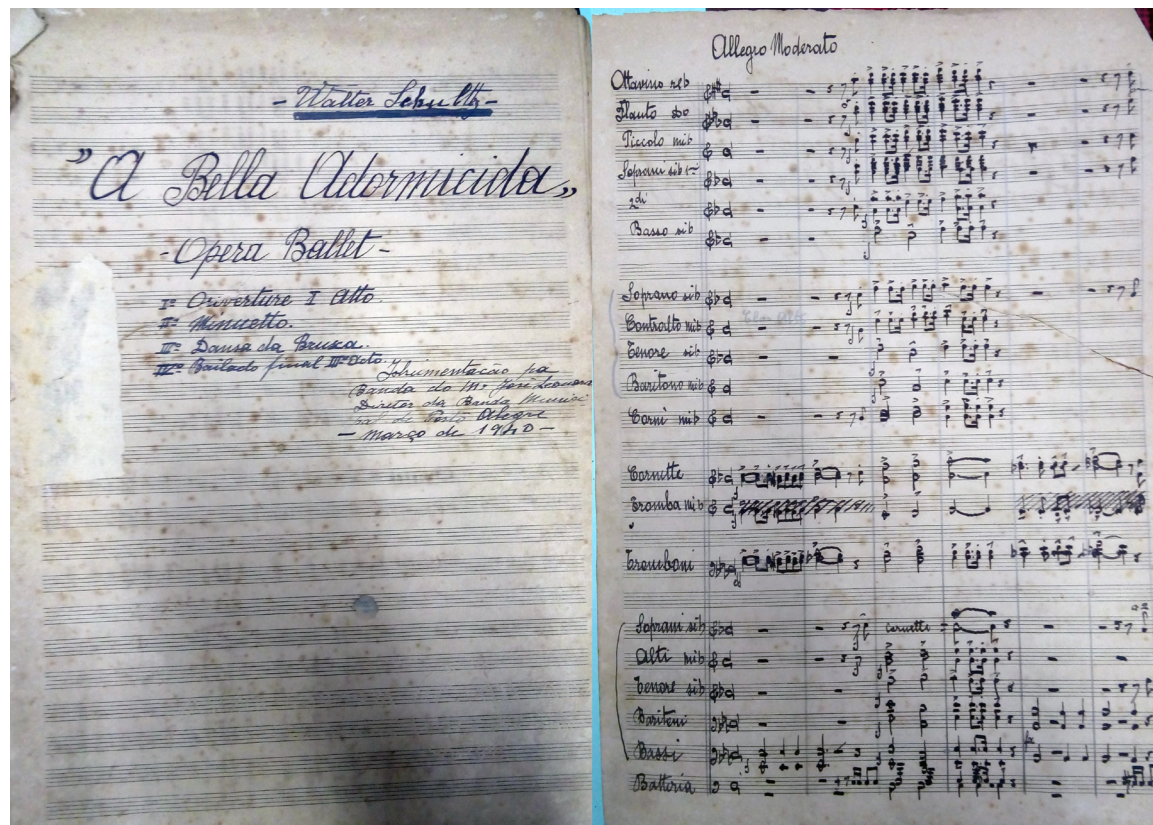 - Walter Schultz -
"A Bella Adormicida"
- Opera Ballet -
Iº Ouverture I Atto.
IIº Minuetto.
IIIº Dansa da Bruxa.
IVº Bailado final IIIº Acto.
Istrumentacao pa
Banda do Mº José Leonardi
Diretor da Banda Munici
de Porto Alegre
- Março de 1940 -
Allegro Moderato
Ottavino reb
Flauto do
Piccolo mib
Soprani sib 1-
2di
Basso sib
Soprano sib
Contralto mib
Tenore sib
Baritono mib
Corni mib
Cornette
Tromba mib
Tromboni
Soprani sib
cornette
Alti mib
Tenore sib
Baritoni
Bassi
Batteria